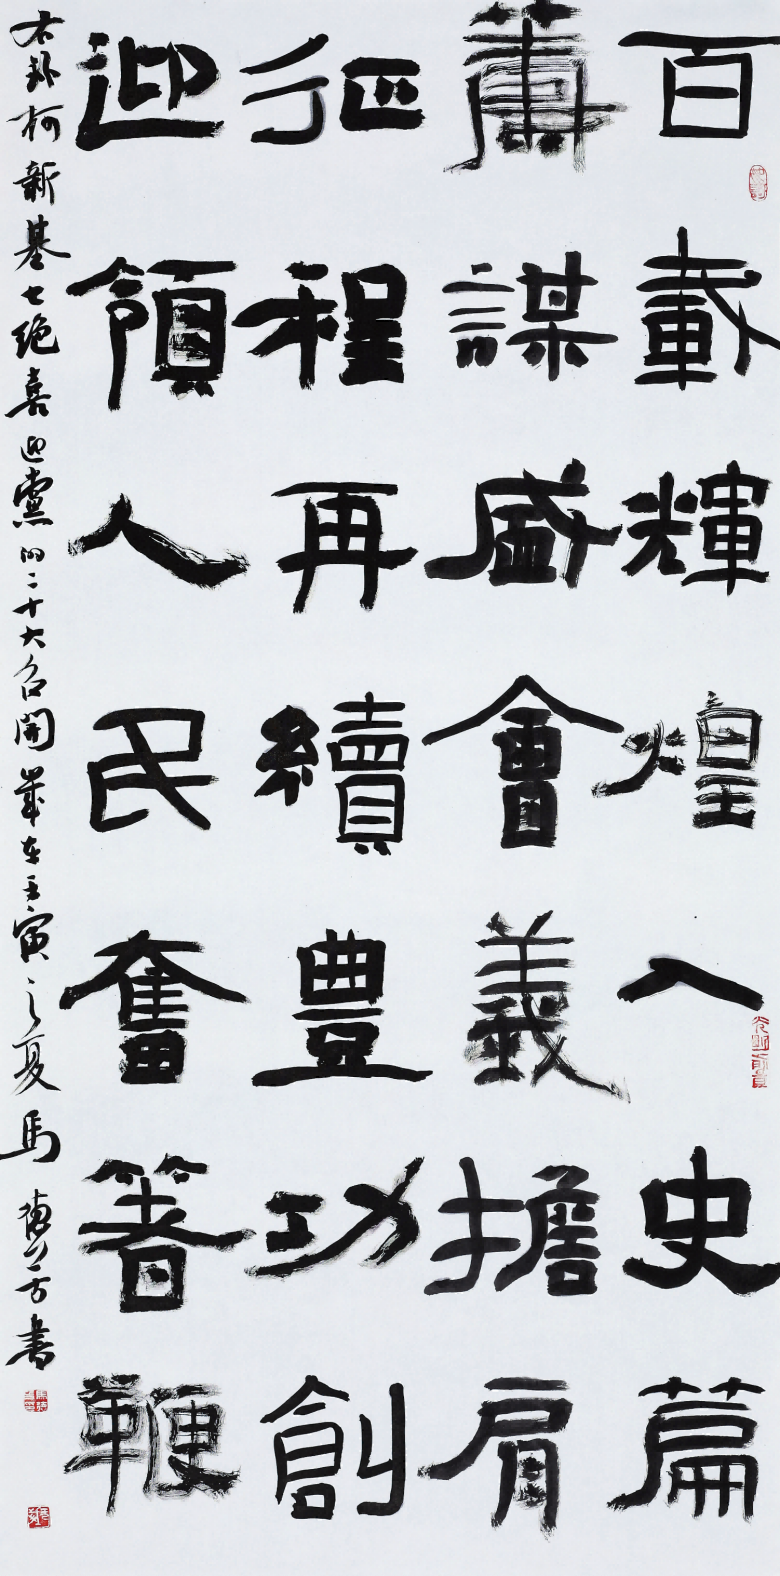 百載輝煌入史篇
謀盛會義擔肩
征程再續豐功創
迎領人民奮箸鞭
右柯新基七絶喜迎黨的二十大召開歲在壬寅之夏馬書